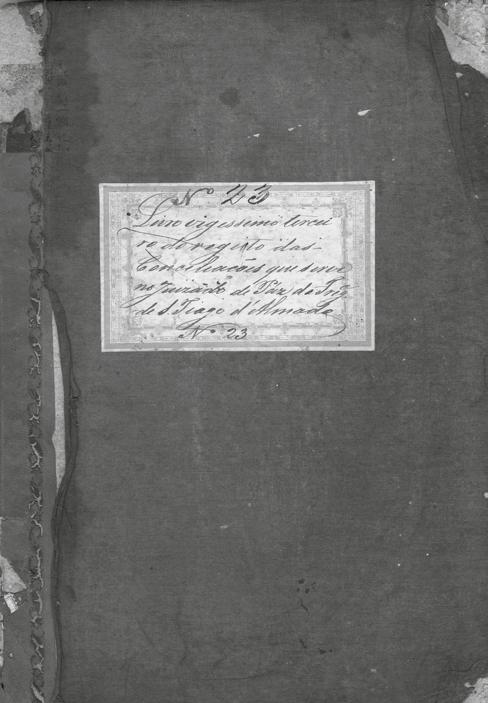 Nº 23
Livro vigessimo tercei
ro do registo das
Conciliacões que serve
no Juizado de Páz da Frg.
de S. Tiago d'Almada
Nº 23